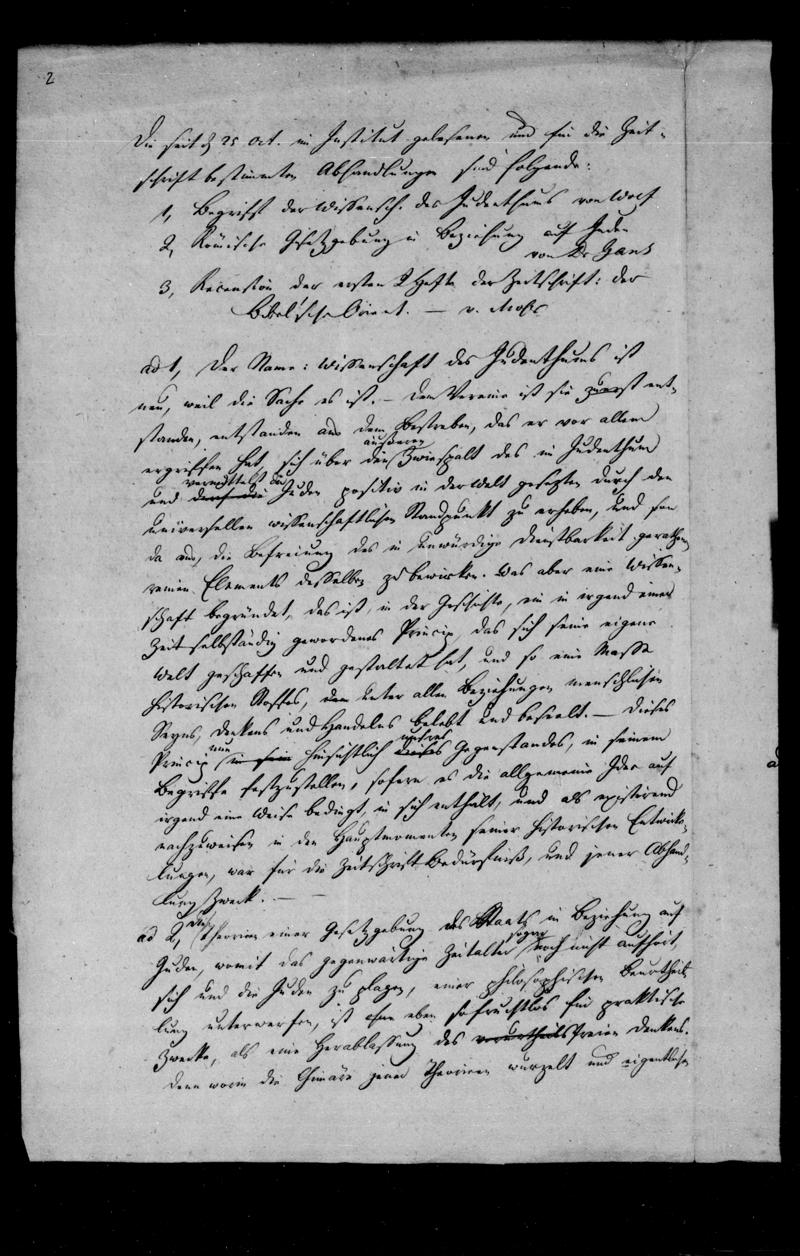 2
Die seit d 25 Oct. im Institut gelesenen und für die Zeit-
schrift bestimmten Abhandlungen sind folgende:
1, Begriff der Wissensch. des Judenthums von Wolf
2, Römische Gesetzgebung in Beziehung auf Juden
von Dr Gans
3, Recension der ersten 2 Hefte der Zeitschrift: der
Bibel'sche Orient. — v. Moser
ad 1, Der Name: Wissenschaft des Judenthums ist
neu, weil die Sache es ist. – Dem Vereine ist sie zuerst ent-
standen, entstanden aus dem Bestreben, das er vor allem
äußeren
ergriffen hat, sich über den Zwiespalt des im Judenthum
vermittelst der
und durch die Juden positiv in der Welt gesetzten durch den
universellen wissenschaftlichen Standpunkt zu erheben, und von
da aus, die Befreiung des in unwürdige Dienstbarkeit gerathenen
reinen Elements desselben zu bewirken. Was aber eine Wissen-
schaft begründet, das ist, in der Geschichte, ein in irgend einer
Zeit selbständig gewordenes Princip, das sich seine eigene
Welt geschaffen und gestaltet hat, und so eine Masse
historischen Stoffes, unter allen Beziehungen menschlichen
Seyns, Denkens und Handelns belebt und beseelt. — Dieses
nun unsres
Princip in sein hinsichtlich dieses Gegenstandes, in seinem
Begriffe festzustellen, sofern es die allgemeine Idee auf
irgend eine Weise bedingt, in sich enthält, und als existirend
nachzuweisen in den Hauptmomenten seiner historischen Entwick-
lungen, war für die Zeitschrift Bedürfniß, und jener Abhand-
lung Zweck. — —
die
ad 2, Theorien einer Gesetzgebung des Staats in Beziehung auf
sogar
Juden, womit das gegenwärtige Zeitalter noch nicht aufhört,
sich und die Juden zu plagen, einer philosophischen Beurthei-
lung unterwerfen, ist eben so fruchtlos für praktische
Zwecke, als eine Herablassung des vorurtheilsfreien Denkens.
Denn worin die Chimäre jener Theorieen wurzelt und eigentlichen